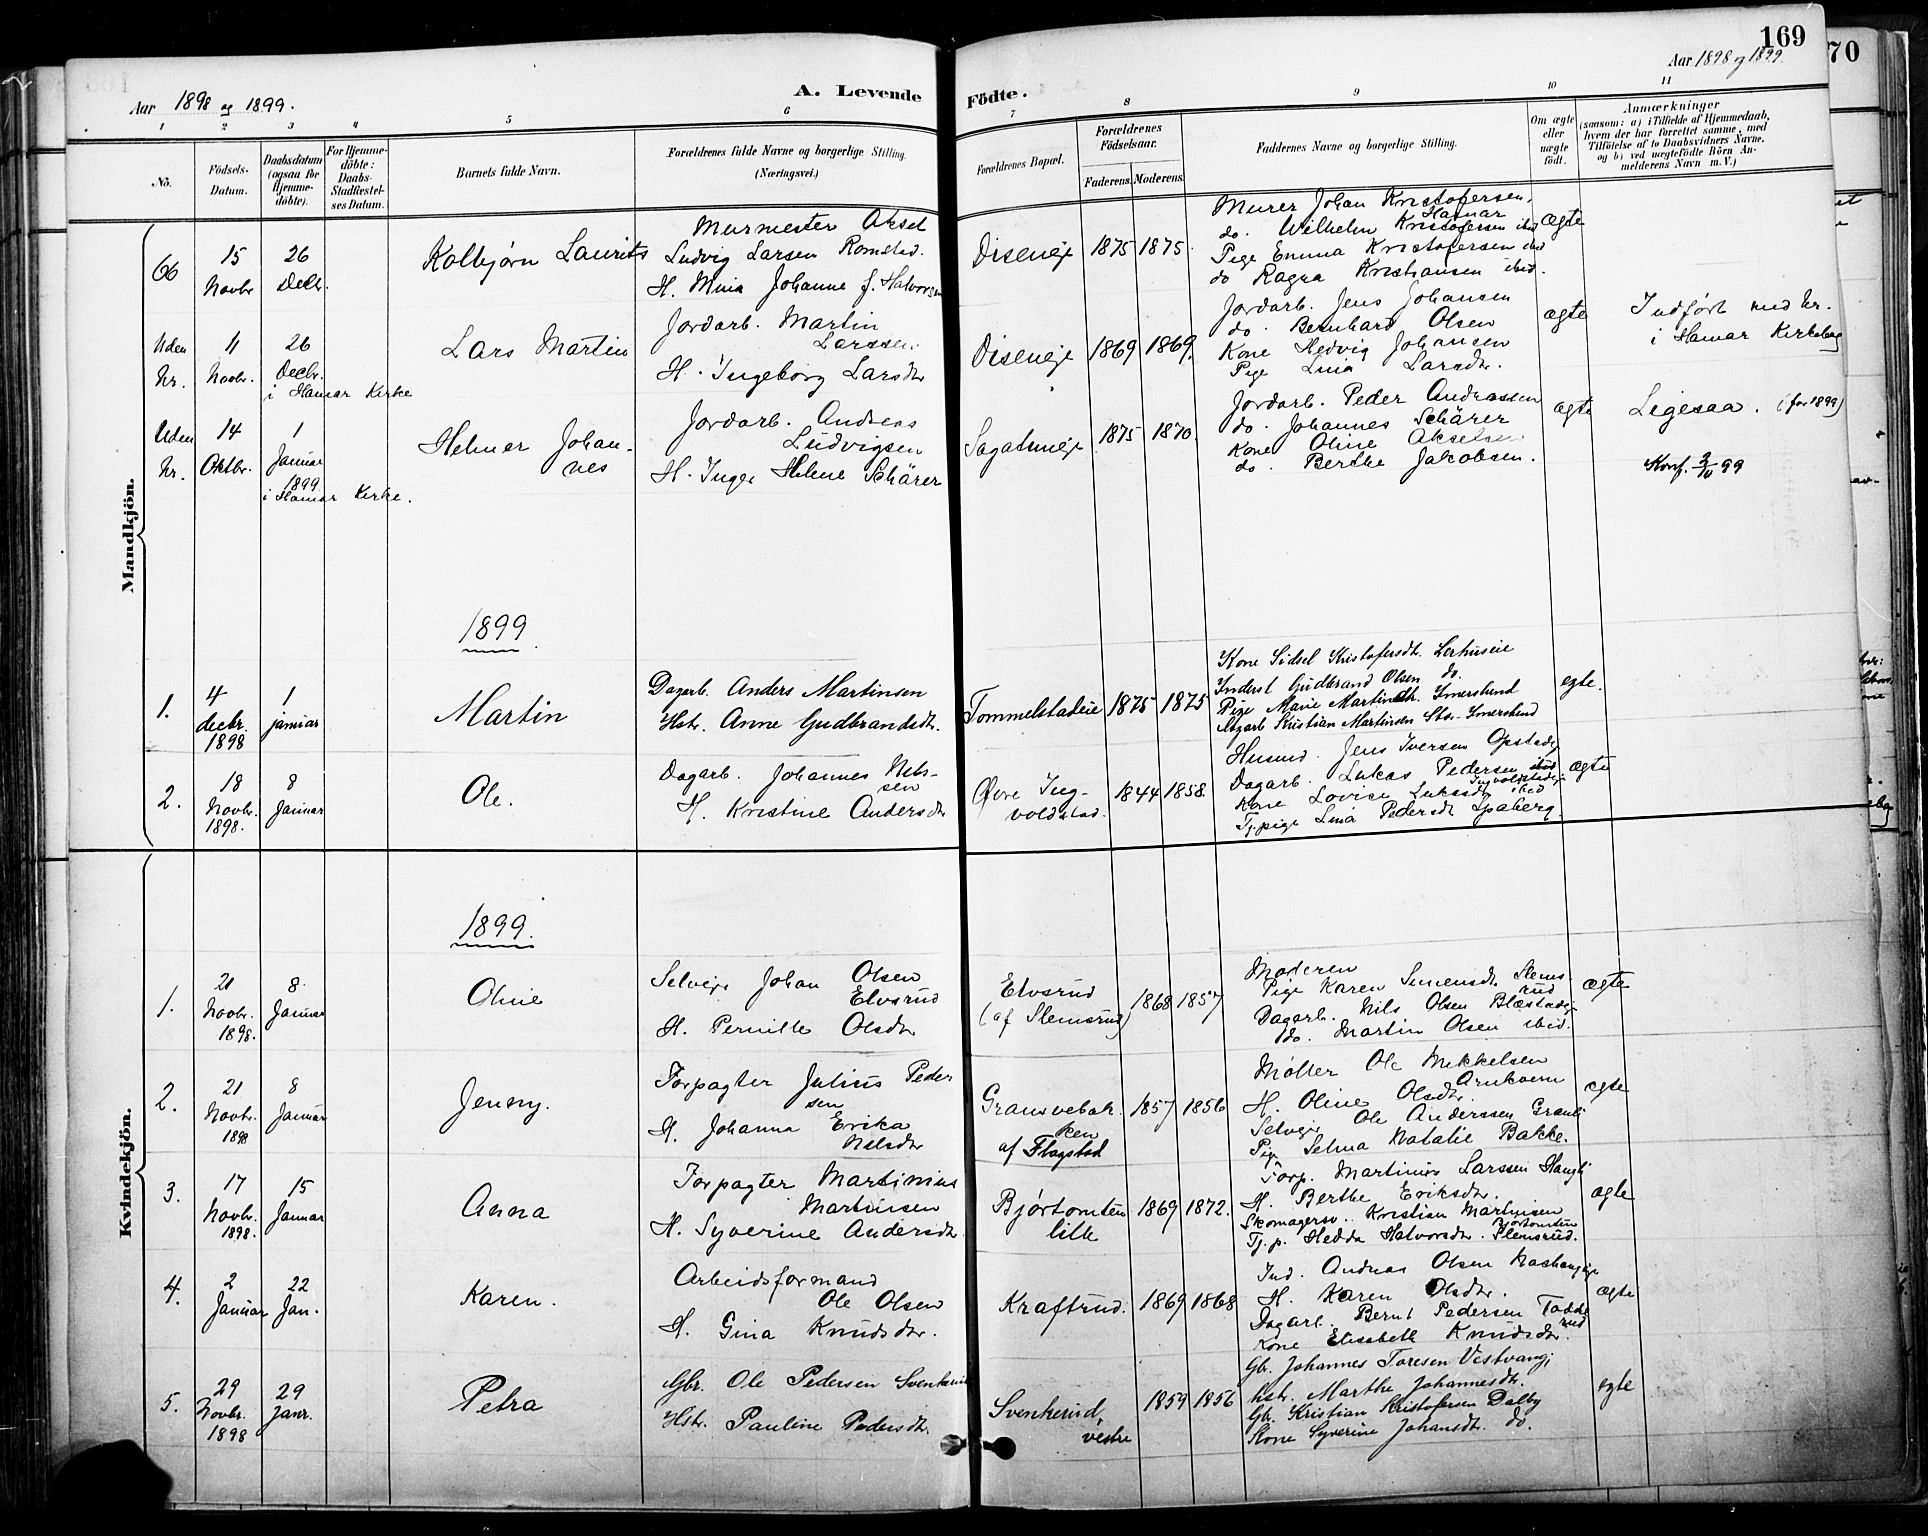 169
70
Aar 1898 og 1899.
A. Levende
Födte.
Aar 1898 og 1899
1 2 3 4 5 6 7 8 9 10 11
No.
Födsels-
Datum.
Daabsdatum
(ogsaa for
Hjemme-
döbte).
For Hjemme-
döbte:
Daabs-
Stadfæstel-
ses Datum.
Barnets fulde Navn.
Forældrenes fulde Navne og borgerlige Stilling.
(Næringsvei.)
Forældrenes Bopæl.
Forældrenes
Födselsaar.
Faderens. Moderens.
Faddernes Navne og borgerlige Stilling.
Om ægte
eller
uægte
födt.
Anmærkninger
(saasom: a) i Tilfælde af Hjemmedaab,
hvem der har forrettet samme, med
Tilföielse af to Daabsvidners Navne,
og b) ved uægtefödte Börn An-
melderens Navn m. V.)
Mandkjön.
66
15
Novbr
26
Decbr.
Kolbjørn Laurits
Murmester Aksel
Ludvig Larsen Romstad.
H. Mina Johanne f. Halvorsen
Diseneje
1875 1875.
Murer Johan Kristofersen,
Hamar
do. Wilhelm Kristofersen ibd
Pige Emma Kristofersen ibd
do Ragna Kristiansen ibid.
ægte
Uden
Nr.
11
Novbr.
26
Decbr.
i Hamar Kirke
Lars Martin
Jordarb. Martin
Larssen.
H. Ingeborg Larsdtr
Diseneje
1869 1869.
Jordarb. Jens Johansen
do. Bernhard Olsen
Kone Hedvig Johansen
Pige Lina Larsdtr.
ægte
Indført med Nr.
i Hamar Kirkebog
Uden
Nr.
14
Oktbr.
1
Januar
1899
i Hamar Kirke.
Helmer Johan-
nes
Jordarb. Andreas
Ludvigsen
H. Inger Helene Schärer
Sagatuneje
1875 1870.
Jordarb. Peder Andreassen
do. Johannes Schärer
Kone Oline Akselsen
do. Berthe Jakobsen.
ægte
Ligesaa. (for 1899)
1899.
1.
4
decbr.
1898
1
januar
Martin
Dagarb. Anders Martinsen
Hstr. Anne Gudbrandsdtr.
Tommelstadeie
1875 1875
Kone Sidsel Kristofersdtr. Lerhuseie
Inderst Gudbrand Olsen do.
Pige Marie Martinsdtr. Imerslund
Dagarb Kristian Martinsen Stor-Imerslund
egte.
2.
18
Novbr.
1898.
8
Januar
Ole.
Dagarb. Johannes Nels-
sen
H. Kristine Andersdtr
Øvre Ing-
voldstad.
1844 1858.
Husmd. Jens Iversen Opstadej
Dagarb. Lukas Pedersen
Ingvoldstadeje
Kone Lovise Luksdtr ibid
Tj.pige Lina Pedersdtr Spaberg.
ægte
Kvindekjön.
1899.
1.
21
Novbr.
1898.
8.
Januar
Oline
Selvejer Johan Olsen
Elvsrud
H. Pernille Olsdtr
Elvsrud
(af Slemsrud)
1868 1857.
Moderen
Pige Karen Simensdtr Slems-
rud
Dagarb. Nils Olsen Blæstadej
do. Martin Olsen ibid.
ægte
2.
21
Novbr.
1898
8
Januar
Jenny.
Forpagter Julius Peder
sen
H. Johanna Erika
Nelsdtr
Gransvebak-
ken
af Flagstad
1857 1856
Møller Ole Mikkelsen
Arnkvern
H. Oline Olsdtr.
Selvejer Ole Anderssen Granli
Pige Selma Natalie Bakke.
ægte
3.
17
Novbr.
1898.
15
Januar
Anna
Forpagter Martinius
Martinsen
H. Syverine Andersdtr.
Bjørtomten
lille
1869 1872.
Forp. Martinus Larssen Haugli
H. Berthe Eriksdtr.
Skomagersv. Kristian Martinsen
Bjørtomten
Tj.p. Hedda Halvorsdtr. Slemsrud.
ægte
4.
2
Januar
22
Jan.
Karen.
Arbeidsformand
Ole Olsen
H. Gina Knudsdtr.
Kraftrud.
1869 1868
Ind. Andreas Olsen
H. Karen Olsdtr.
Dagarb. Bernt Pedersen Todde
rud
Kone Elisabeth Knudsdtr.
ægte
5.
29
Novbr.
1898
29
Janr.
Petra
Gbr. Ole Pedersen Svenkerud
Hstr. Pauline Pedersdtr.
Svenkerud,
vestre
1859 1856
Gb. Johannes Toresen Vestvang,
hstr. Marthe Johannesdtr.
Gb. Kristian Kristofersen Dalby
Kone Syverine Johansdtr. do.
egte